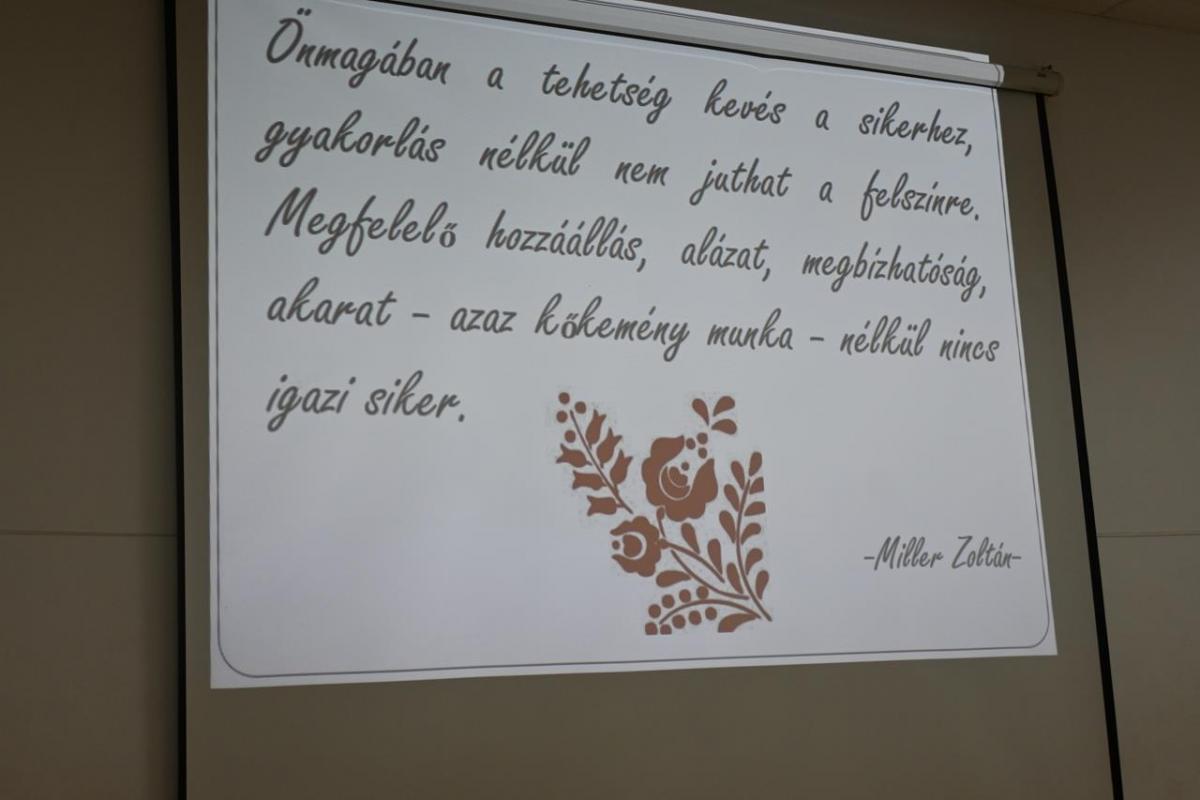 Önmagában a tehetség kevés a sikerhez,
gyakorlás nélkül nem juthat a felszínre.
Megfelelő hozzáállás, alázat, megbízhatóság,
akarat – azaz kőkemény munka – nélkül nincs
igazi siker.
-Miller Zoltán-